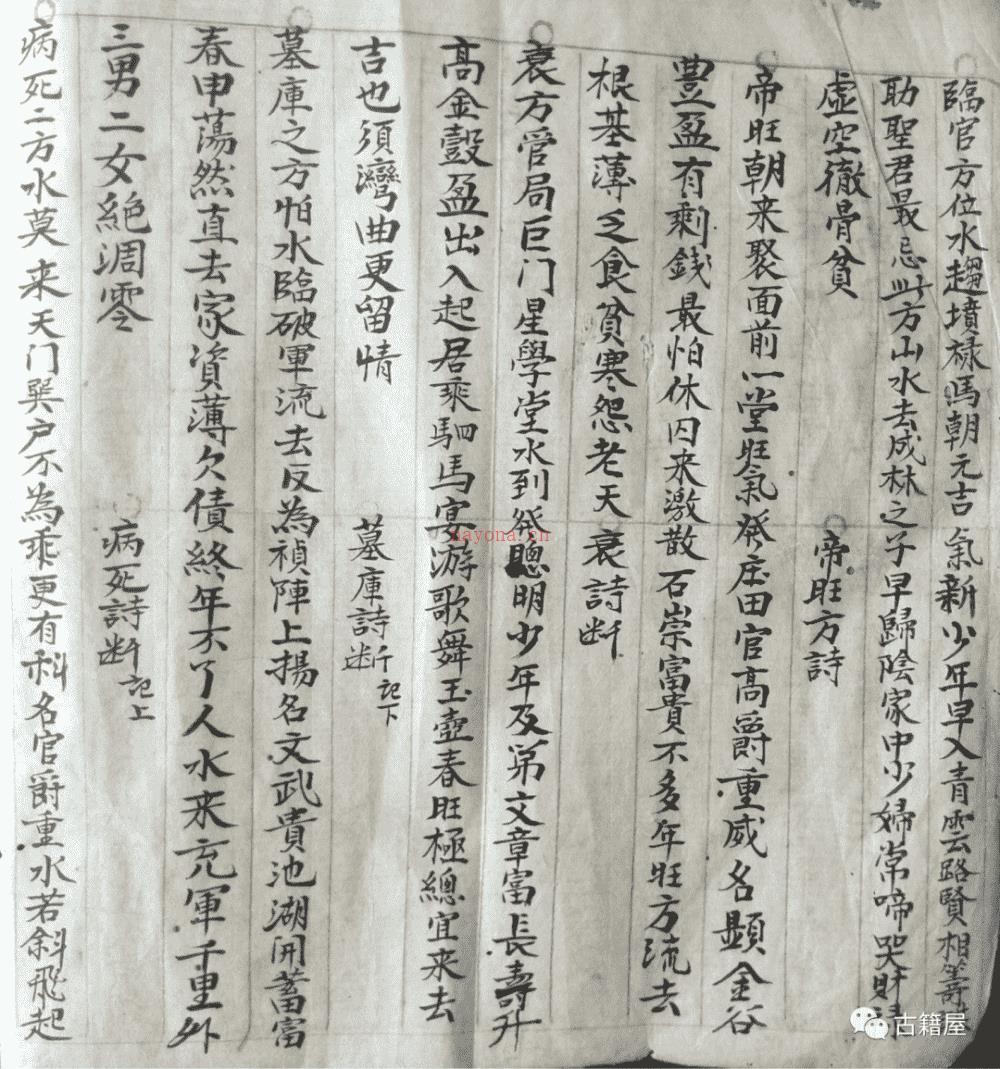 臨官方位水趨墳禄馬朝元吉氣新少年早入青雲路賢相籌
助聖君最忌此方山水去成林之子早歸陰家中少婦常啼哭財
虛空徹骨貧
帝旺方詩
帝旺朝来聚面前一堂旺氣発庄田官高爵重威名顯金谷
豊盈有剩銭最怕休囚来激散石崇富貴不多年旺方流去
根基薄乏食貧寒怨老天
衰詩断
衰方管局巨门星學堂水到発聰明少年及第文章富長壽升
高金穀盈出入起居乘駟馬宴游歌舞玉壺春旺極總宜来去
吉也須灣曲更留情
墓庫詩断
記下
墓庫之方怕水臨破軍流去反為禎陣上揚名文武貴池湖開蓄富
春申蕩然直去家資薄欠債終年不了人水来充軍千里外
三男二女絶凋零
病死詩断
記上
病死二方水莫来天门巽户不為乖更有科名官爵重水若斜飛起
nayona.cn
古籍屋